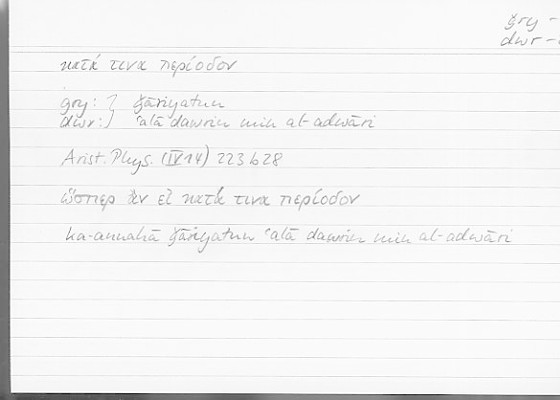 ǧry -
dwr -
κατά τινα περίοδον
ǧry: } ǧāriyatun
dwr: } ʿalā dawrin min al-adwāri
Arist. Phys. (IV 14) 223 b 28
ὥσπερ ἂν εἰ κατά τινα περίοδον
ka-annahā ǧāriyatun ʿalā dawrin min al-adwāri